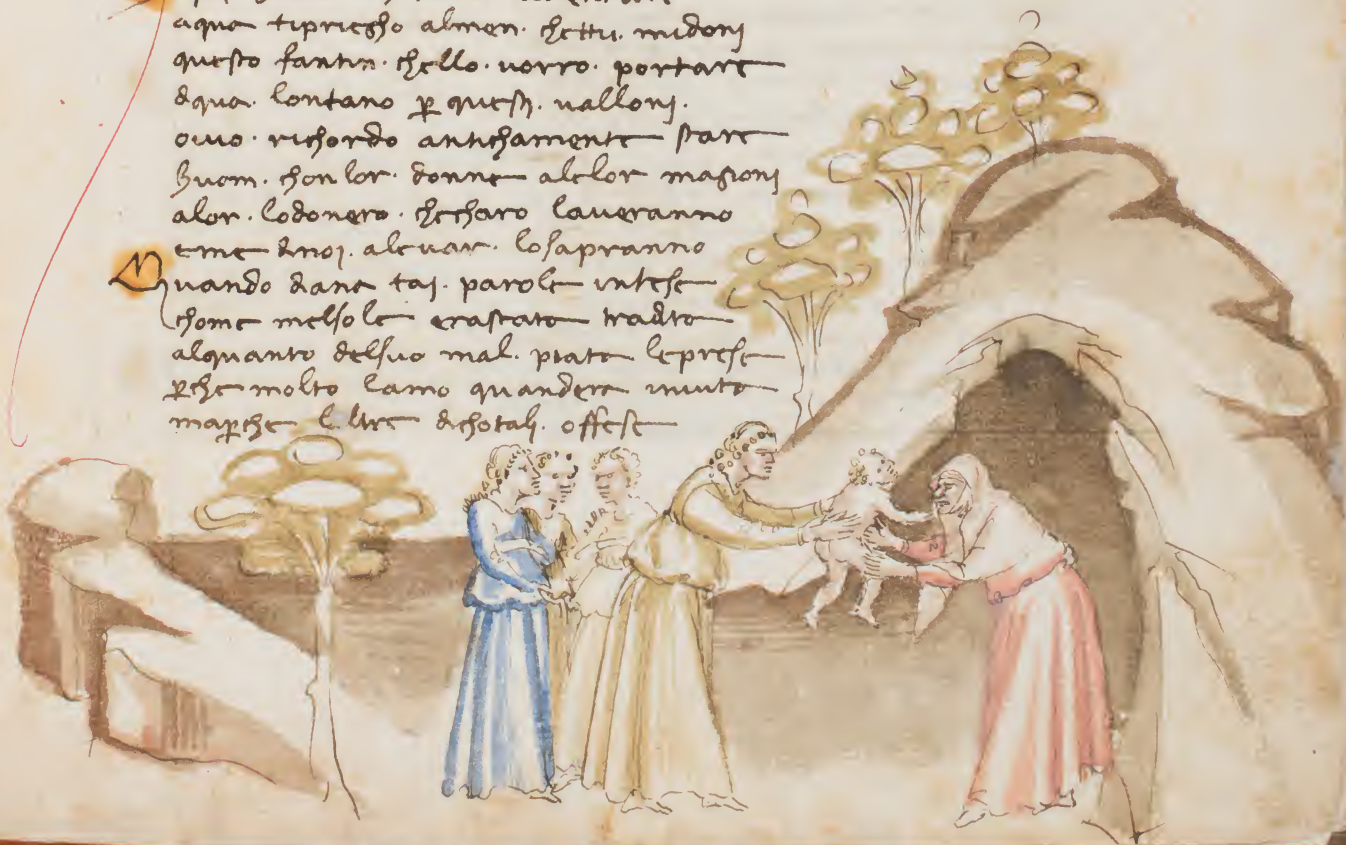 aqua tipriegho almen · chettu · midoni
questo fantin · chello · uorro · portare
dqua · lontano ꝑ questi · ualloni ·
ouio · richordo antichamente stare
huom · chon lor · donne alelor magioni
alor · lodonero · checharo laueranno
eme dnoj · aleuar · losapranno
Quando dana taj · parole intese
chome melsola erastata tradita
alquanto delsuo mal · pieta leprese
ꝑche molto lamo quandera inuita
maꝑche dichotalj · offese